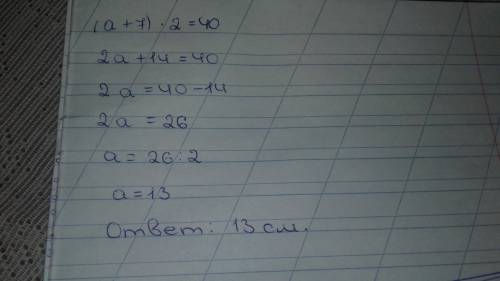 (a+7)·2=40
2a+14=40
2a=40-14
2a=26
a=26:2
a=13
Ответ: 13 см.